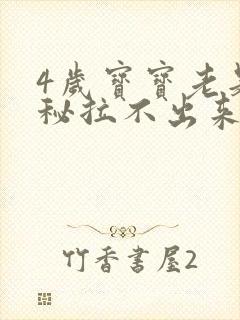 4歲寶寶老是
秘拉不出來
竹香書屋2